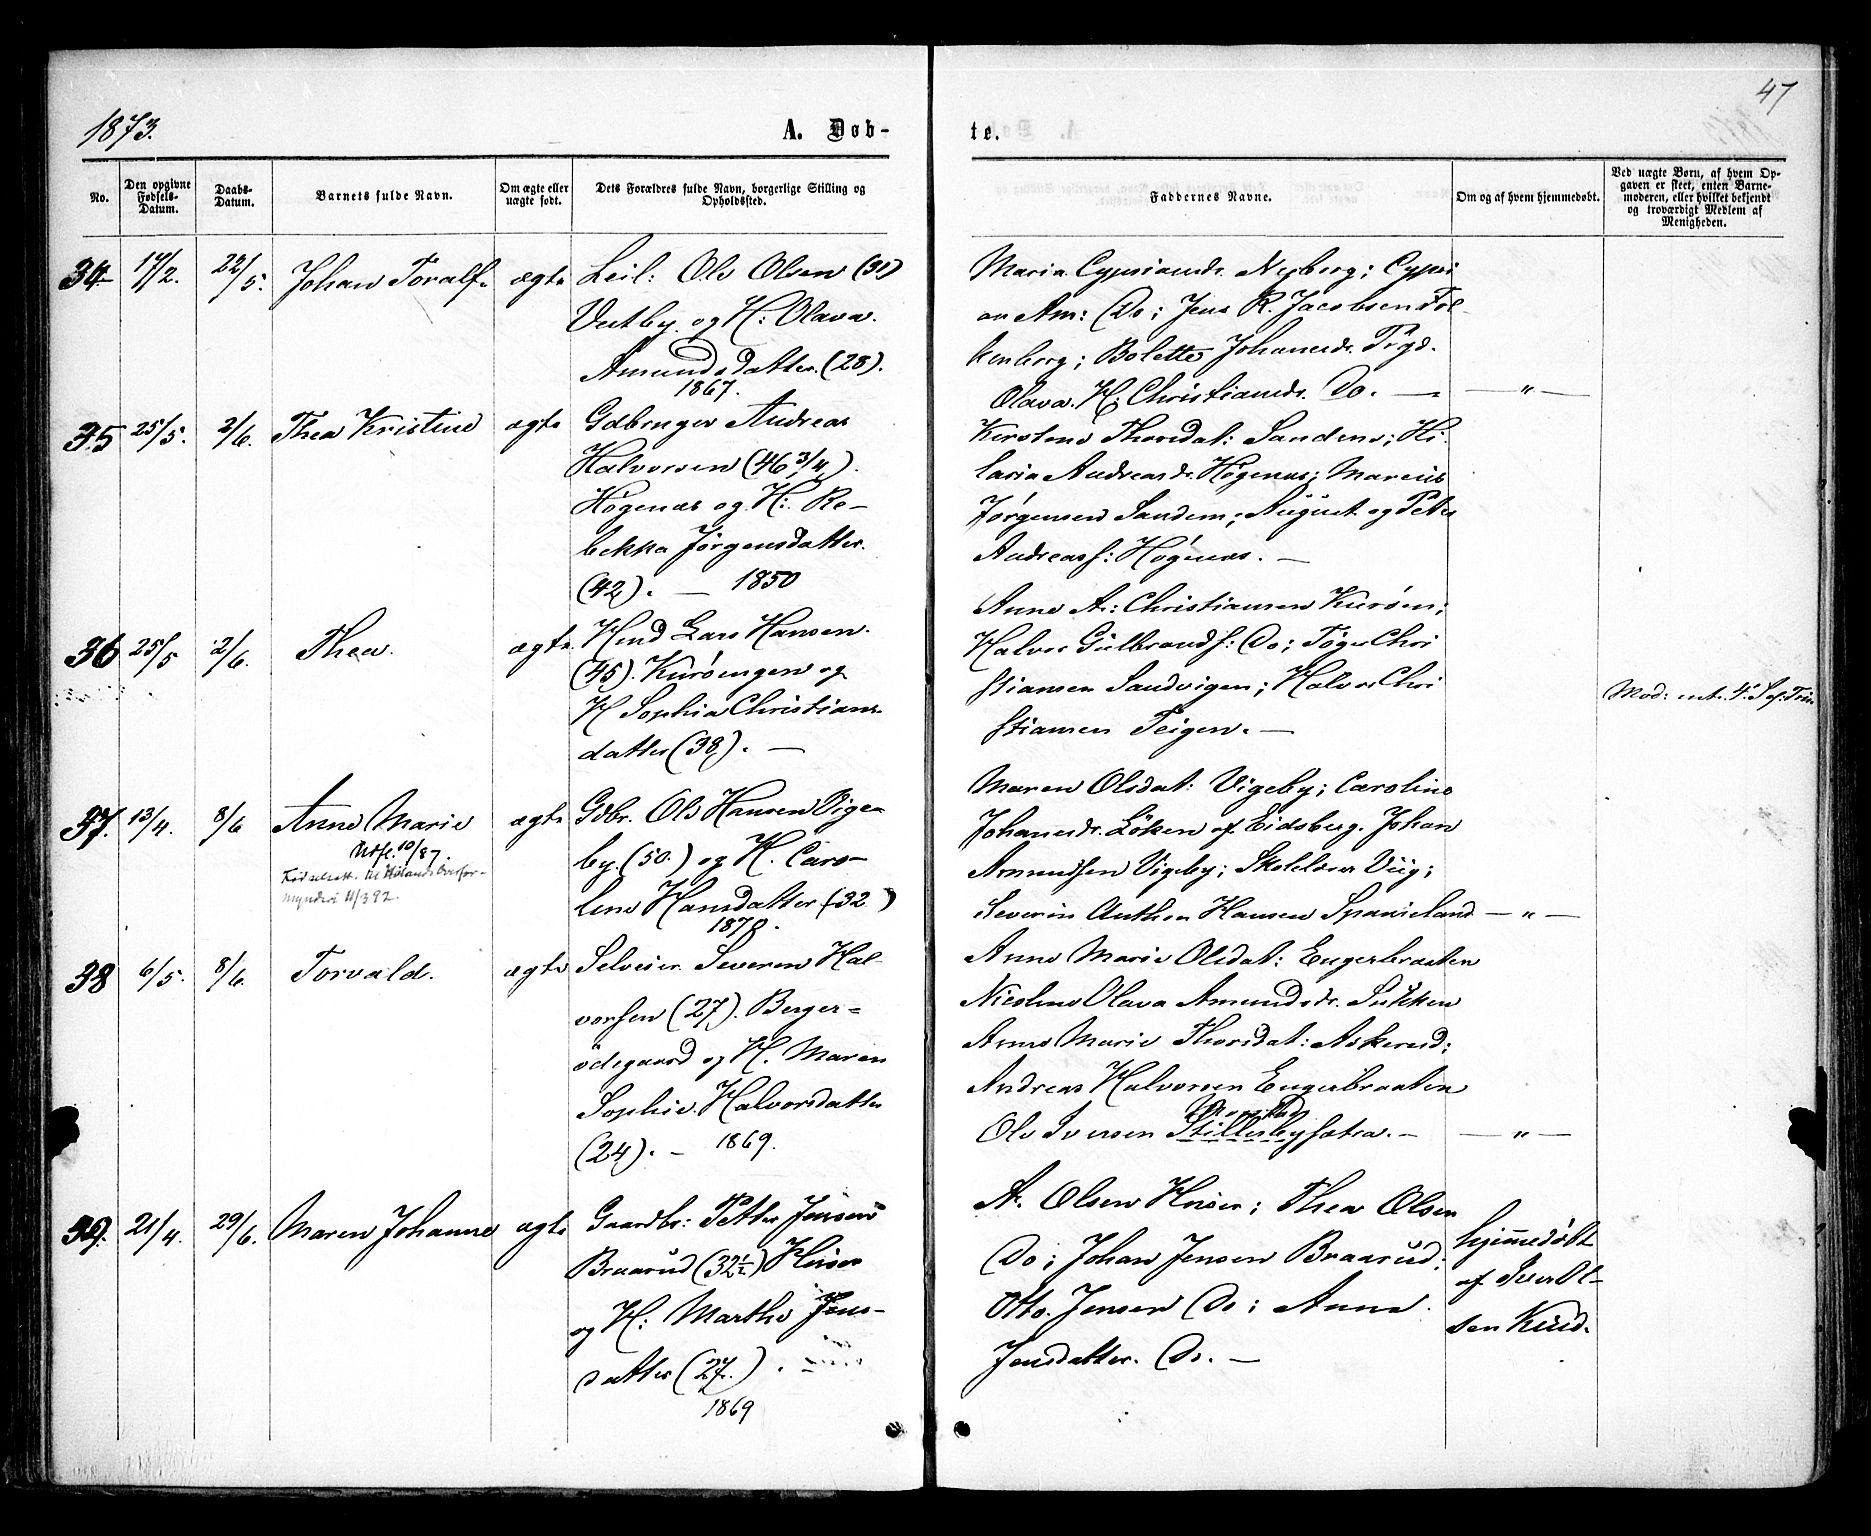 47
1873.
A. Døb-
te.
No.
Den opgivne Fødsels-Datum.
Daabs-Datum.
Barnets fulde Navn.
Om ægte eller uægte født.
Dets Forældres fulde Navn, borgerlige Stilling og Opholdssted.
Faddernes Navne.
Om og af hvem hjemmedøbt.
Ved uægte Børn, af hvem Opgaven er skeet, enten Barnemoderen, eller hvilket bekjendt og troværdigt Medlem af Menigheden.
34 17/2. 22/5. Johan Toralf. ægte Leil: Ole Olsen (31)
og H: Olava.
Amundsdatter. (28).
1867.
Maria Cyprians. Nyberg; Cypri
an Am: Do; Jens R. Jacobsen Fal
kenborg; Bolette Johanesdr.
Olava. H. Christiansdr. Do. — — „ —
35 25/5. 2/6. Thea Kristine ægte Gdbruger Andreas
Halvorsen (46 3/4).
Høgenæs og H: Re-
bekka Jørgensdatter.
(42). — 1850
Thorsdat: Sandem; Hi
laria Andreasdr. Høgenæs; Marcus
Jørgensen Sandem; August og Peter
Andreass: Høgenæs. —
36 25/5 2/6. Thea. ægte Hmd Lars Hansen.
(45). Kurøengen og
H Sophia Christians
datter (38). —
Anne A: Christiansen Kurøen;
Halvor Gulbrands: Do; Chri
stiansen Sandvigen; Halvor Chri
stiansen Teigen. —
Mod: int. 4. S. ef. Trin.
37. 13/4. 8/6 Anne Marie ægte Gdbr. Ole Hansen Vige-
by. (50.) og H. Caro-
line Hansdatter (32)
1878.
Udf. 10/87.
Fødselsatt. til Hølands Overfor-
mynderi 11/3 92.
Maren Olsdat: Vigeby; Caroline
Johanesdr. Løken af Eidsberg. Johan
Amundsen Vigeby; Skolelærer Viig;
Severin Anthon Hansen Spanieland — „ —
38 6/5. 8/6. Torvald. ægte Selveier. Severin Hal-
vorsen (27). Berger=
ødegaard og H. Maren
Sophie. Halvorsdatter
(24). — 1869.
Anne Marie Olsdat: Engerbraaten
Nicoline Olava Amundsdr.
Anne Marie Thorsdat: Askerud;
Andreas Halvorsen Engerbraaten
Ole Iversen Stillesbysætra. — — „ —
39. 21/4. 29/6. Maren Johanne ægte Gaardbr: Petter Jensen
Braarud (32½)
og H: Marthe Jens-
datter (27.).
1869
A. Olsen Thea Olsen
Do; Johan Jensen Braarud;
Otto. Jensen Do; Anna.
Jensdatter. Do. —
hjemmedøbt
af Iver Ol-
sen